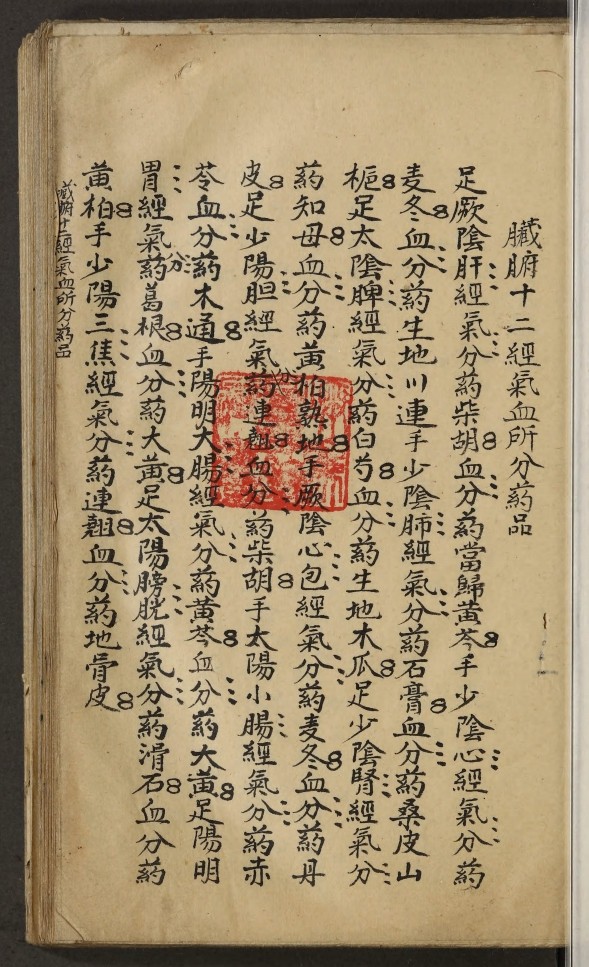 臟腑十二經氣血所分藥品
足厥陰肝經氣分药柴胡血分药當歸黄芩手少陰心經氣分药
麦冬血分药生地川連手少陰肺經氣分药石膏血分药桑皮山
梔足太陰脾經氣分药白芍血分药生地木瓜足少陰腎經氣分
药知母血分药黄柏熟地手厥陰心包經氣分药麦冬血分药丹
皮足少陽胆經氣分药連翹血分药柴胡手太陽小腸經氣分药赤
苓血分药木通手陽明大腸經氣分药黄芩血分药大黄足陽明
胃經氣分药葛根血分药大黄足太陽膀胱經氣分药滑石血分药
黄柏手少陽三焦經氣分药連翹血分药地骨皮
臟腑十二經氣血所分药品